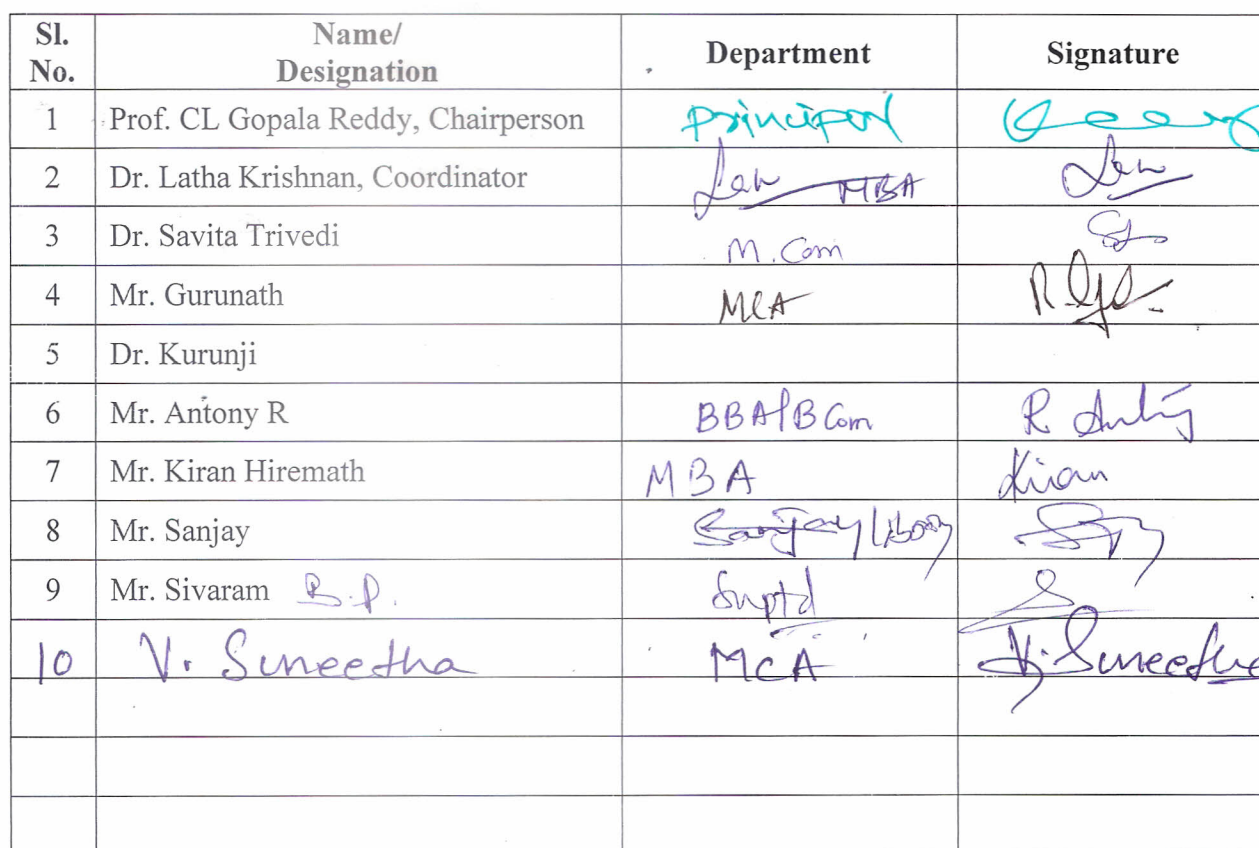 Sl. No. Name/ Designation Department Signature
1 Prof. CL Gopala Reddy, Chairperson Principal
2 Dr. Latha Krishnan, Coordinator MBA
3 Dr. Savita Trivedi M.Com
4 Mr. Gurunath MCA
5 Dr. Kurunji
6 Mr. Antony R BBA/BCom R Antony
7 Mr. Kiran Hiremath MBA Kiran
8 Mr. Sanjay Sanjay/Library
9 Mr. Sivaram B.P. Suptd
10 V. Suneetha MCA V. Suneetha